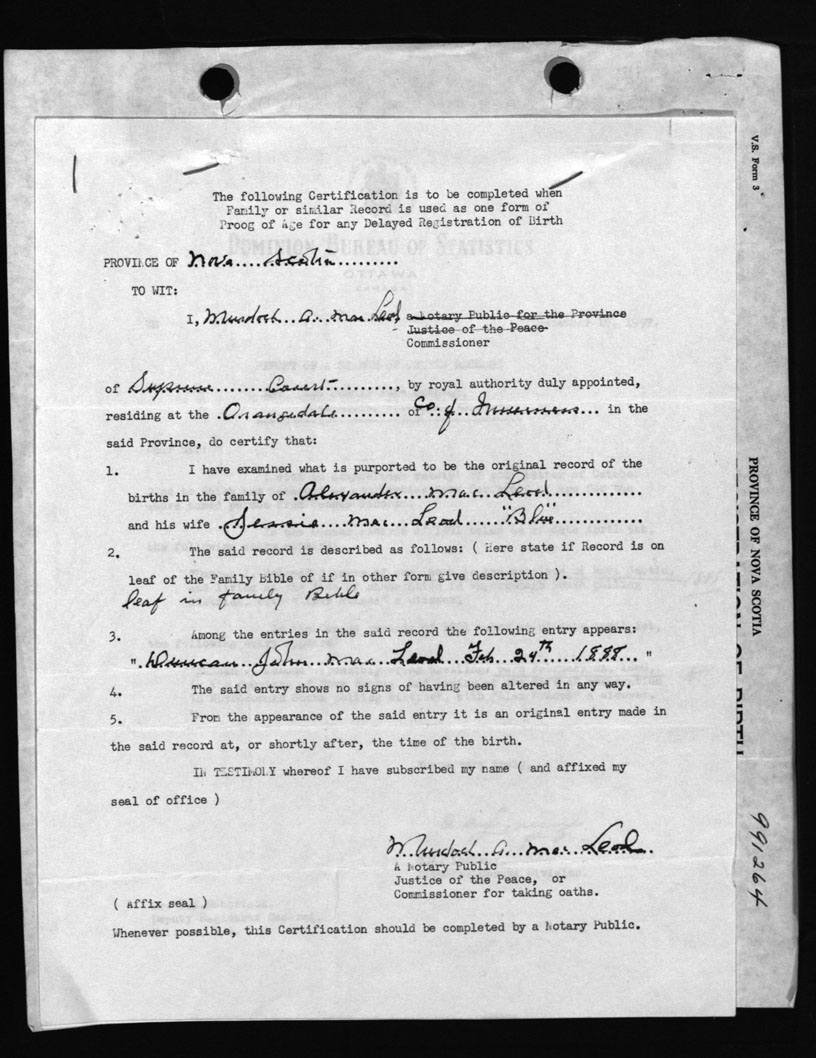 The following Certification is to be completed when
Family or similar Record is used as one form of
Proog of Age for any Delayed Registration of Birth
DOMINION BUREAU OF STATISTICS
OTTAWA
PROVINCE OF Nova.....Scotia..........
TO WIT:
I, Murdoch...A...Mac Leod a Notary Public for the Province
Justice of the Peace
Commissioner
of Supreme.......Court.........., by royal authority duly appointed,
residing at the .Orangedale.......... of Co. of. Inverness... in the
said Province, do certify that:
1. I have examined what is purported to be the original record of the
births in the family of .Alexander...Mac..Leod.............
and his wife .Jessie....Mac...Leod....."Blue".............
2. The said record is described as follows: ( Here state if Record is on
leaf of the Family Bible of if in other form give description ).
leaf in family Bible
3. Among the entries in the said record the following entry appears:
".Duncan..John...Mac..Leod...Feb..24th....1888..."
4. The said entry shows no signs of having been altered in any way.
5. From the appearance of the said entry it is an original entry made in
the said record at, or shortly after, the time of the birth.
IN TESTIMONY whereof I have subscribed my name ( and affixed my
seal of office )
Murdoch..A...Mac...Leod.
A Notary Public
Justice of the Peace, or
Commissioner for taking oaths.
( Affix seal )
Whenever possible, this Certification should be completed by a Notary Public.
V.S. Form 3
PROVINCE OF NOVA SCOTIA
REGISTRATION OF BIRTH
991264